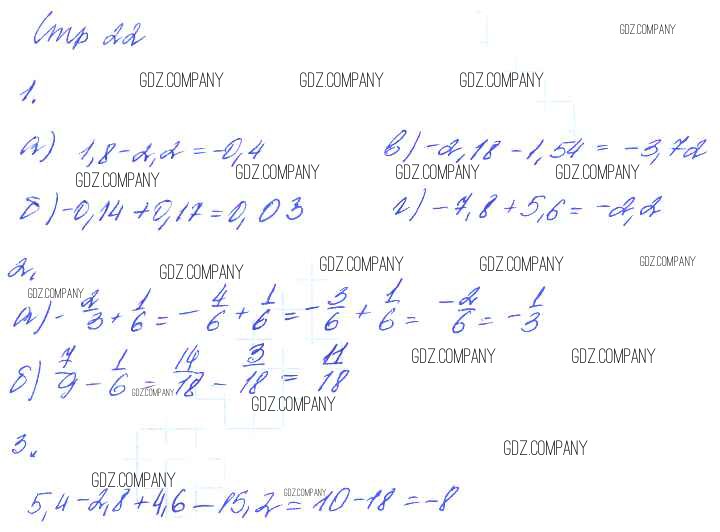 Стр 22
GDZ.COMPANY
GDZ.COMPANY GDZ.COMPANY GDZ.COMPANY
1.
а) 1,8 - 2,2 = -0,4 в) -2,18 - 1,54 = -3,72
GDZ.COMPANY GDZ.COMPANY GDZ.COMPANY GDZ.COMPANY
б) -0,14 + 0,17 = 0,03 г) -7,8 + 5,6 = -2,2
2.
GDZ.COMPANY GDZ.COMPANY GDZ.COMPANY GDZ.COMPANY
GDZ.COMPANY
а) - 2/3 + 1/6 = - 4/6 + 1/6 = - 3/6 + 1/6 = -2/6 = - 1/3
GDZ.COMPANY GDZ.COMPANY
б) 7/9 - 1/6 = 14/18 - 3/18 = 11/18
GDZ.COMPANY
GDZ.COMPANY
3.
GDZ.COMPANY
GDZ.COMPANY
5,4 - 2,8 + 4,6 - 15,2 = 10 - 18 = -8
GDZ.COMPANY